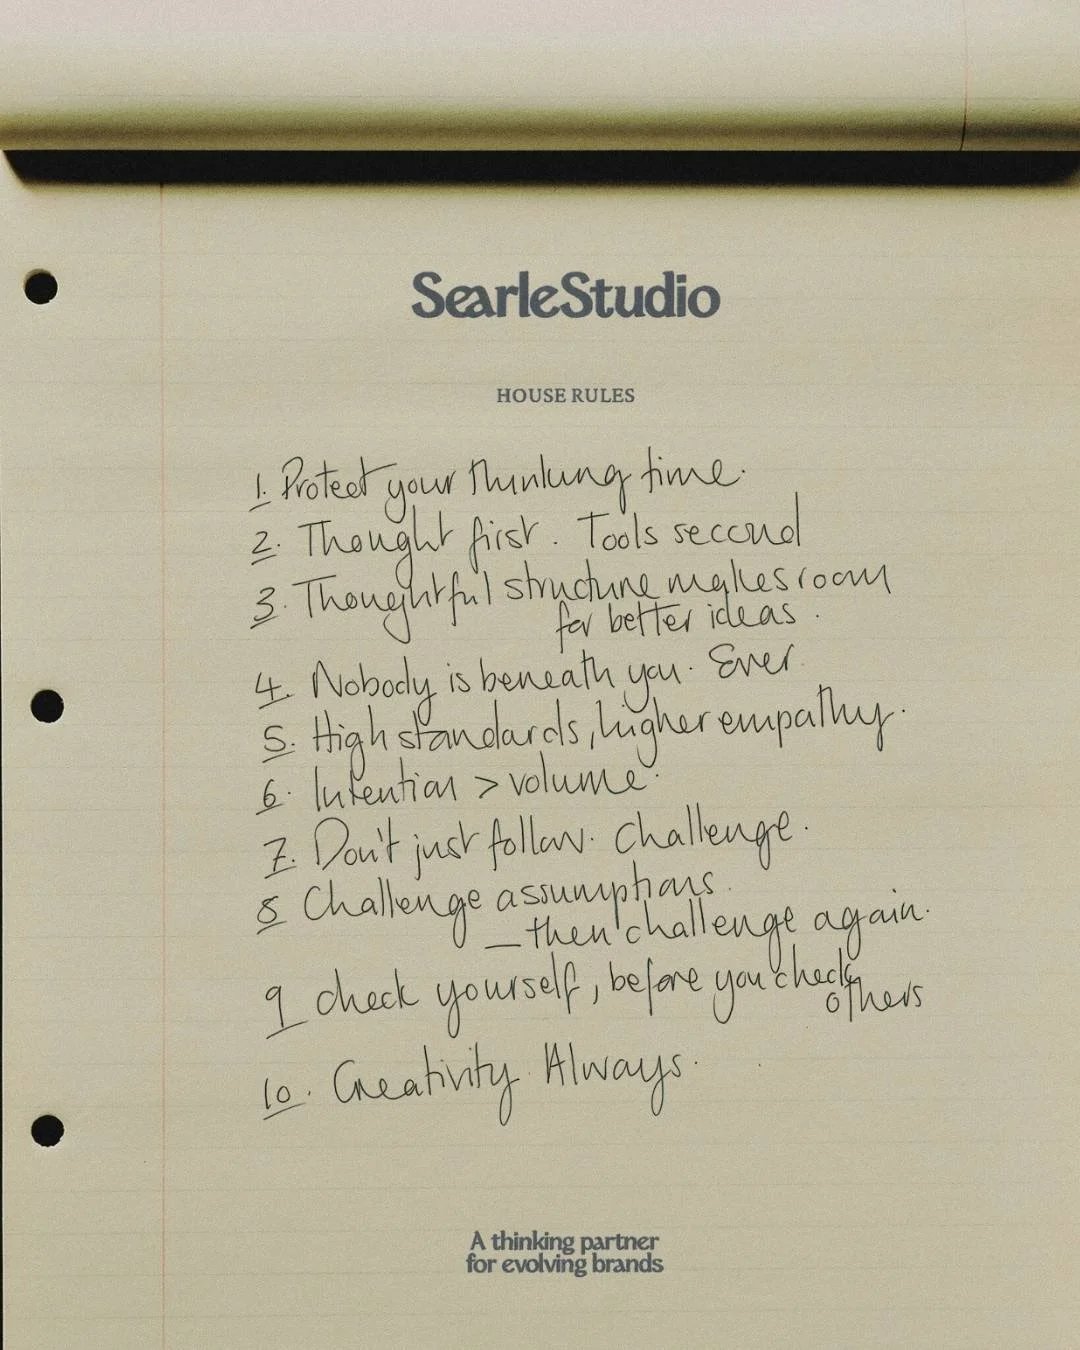 SearleStudio
HOUSE RULES
1. Protect your thinking time.
2. Thought first. Tools second
3. Thoughtful structure makes room
for better ideas.
4. Nobody is beneath you. Ever.
5. High standards, higher empathy.
6. Intention > volume.
7. Don't just follow. Challenge.
8 Challenge assumptions.
_then challenge again.
9 check yourself, before you check
others
10. Creativity. Always.
A thinking partner
for evolving brands